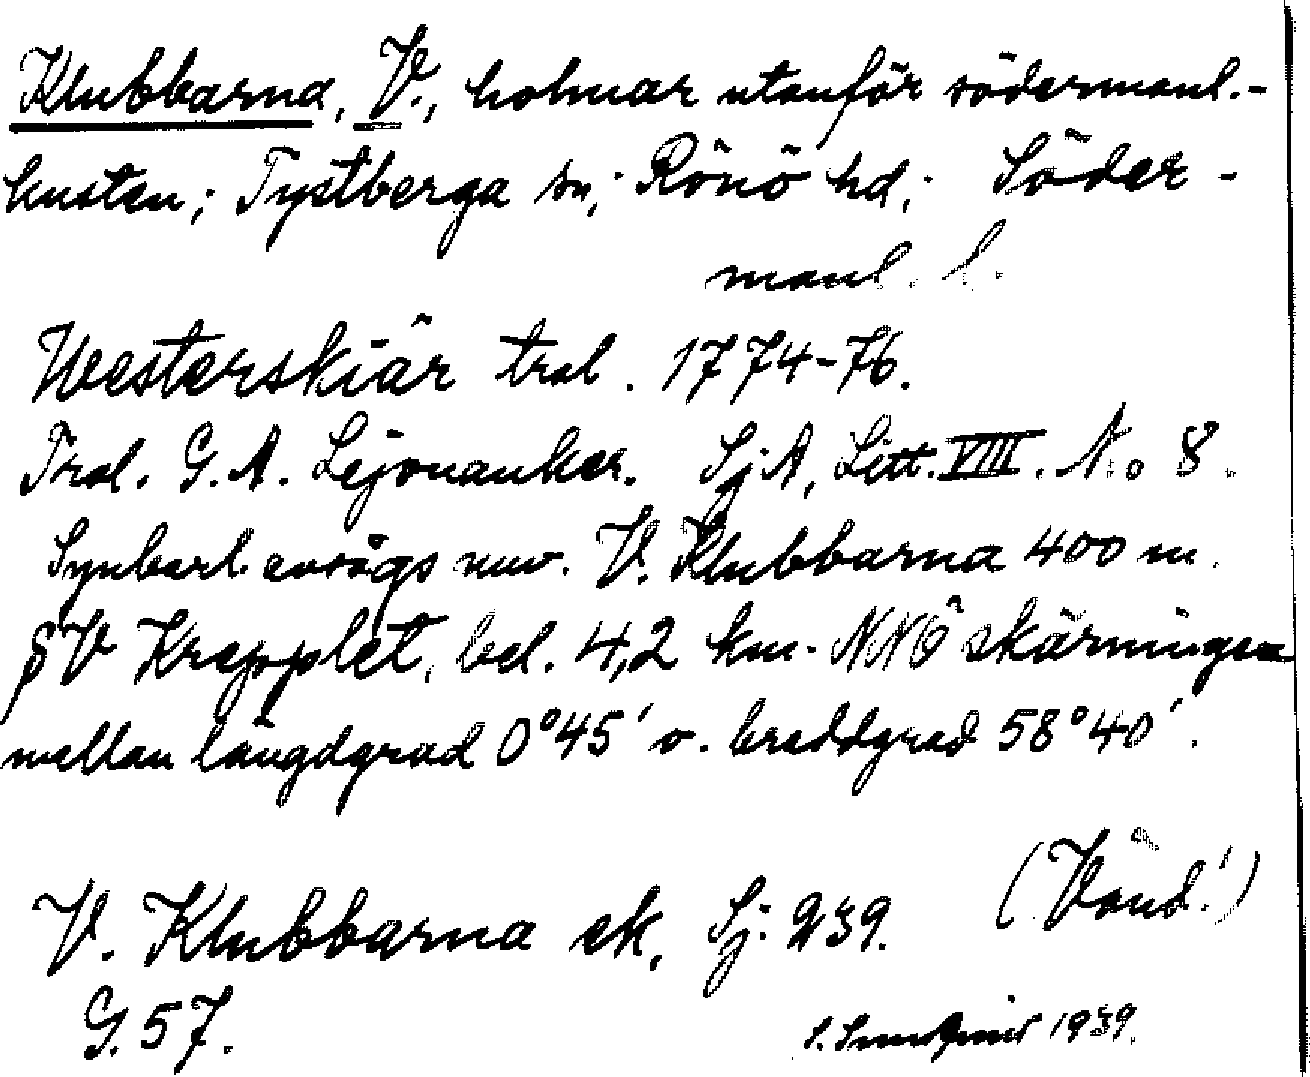 Klubbarna, V., holmar utanför södermanl.-
kusten; Tystberga sn; Rönö hd; Söder-
manl. l.
Westerskiär trol. 1774-76.
Trol. G. A. Lejonanker. Sj.A, Litt. VIII. No 8.
Synbarl. avsågs nuv. V. Klubbarna 400 m.
SV Krepplet, bel. 4,2 km. NNÖ skärningen
mellan längdgrad 0°45' o. breddgrad 58°40'.
(Vänd!)
V. Klubbarna ek, Sj. 239.
G. 57.
1939.